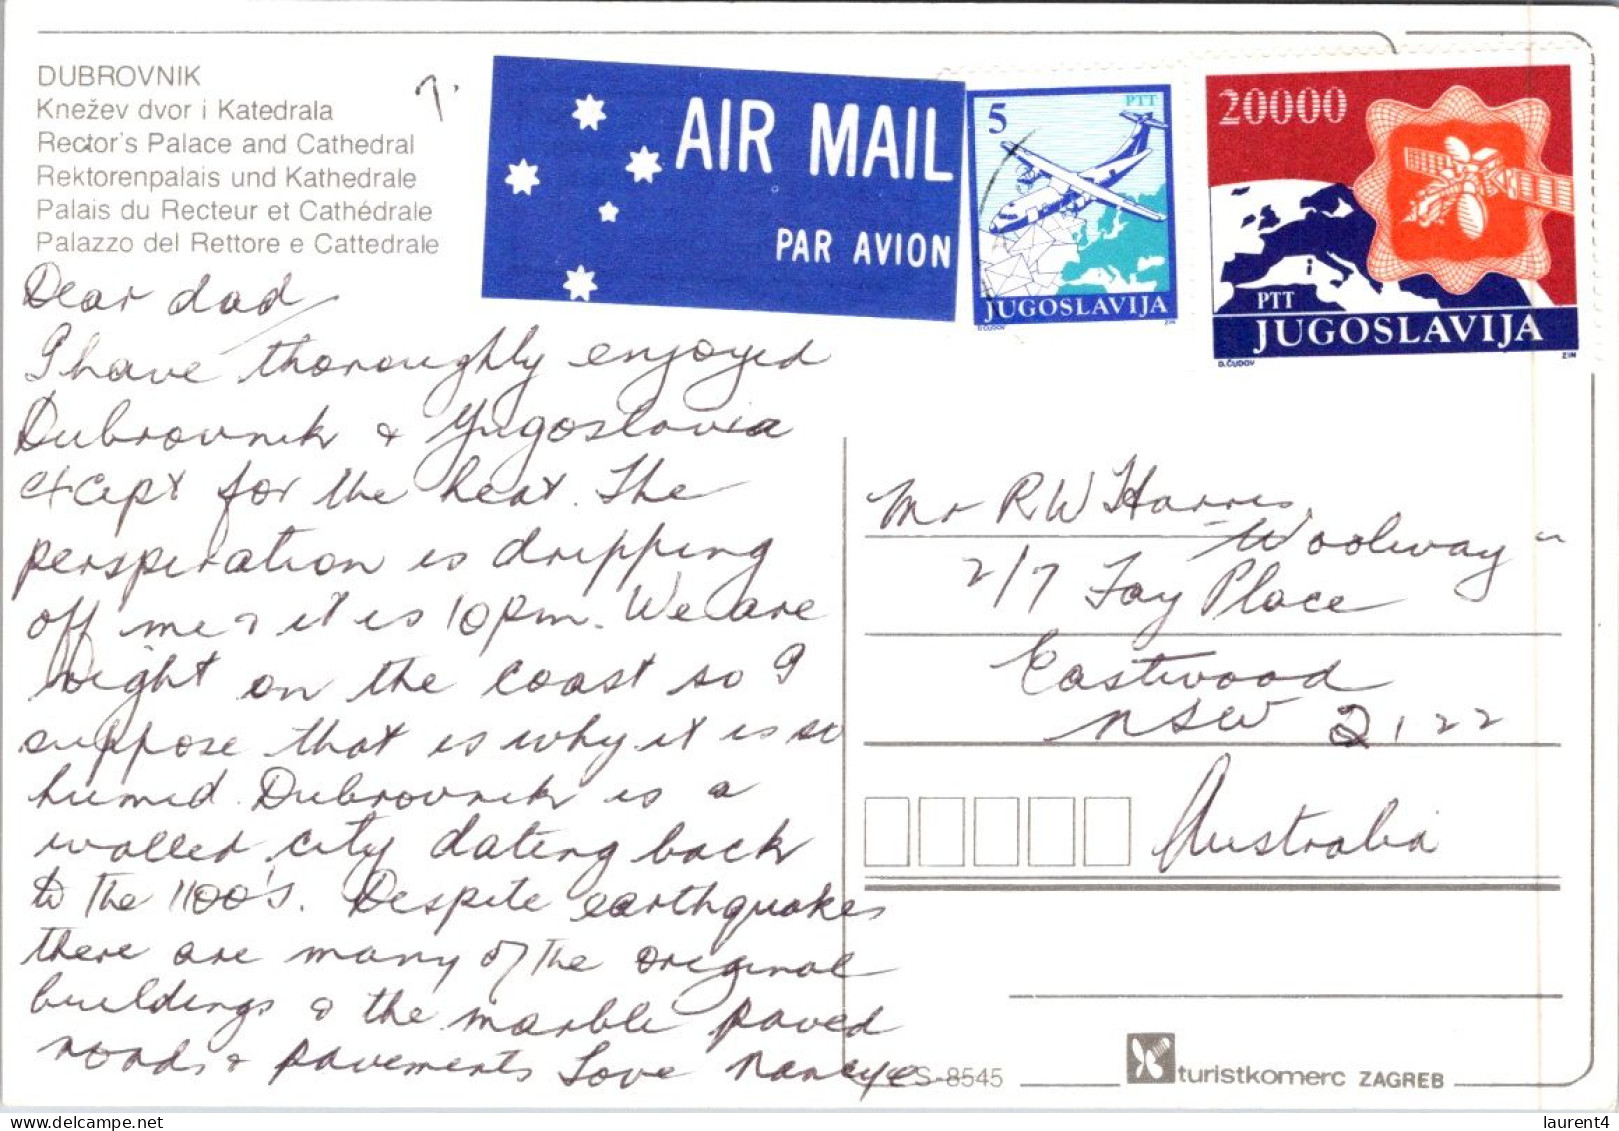 DUBROVNIK
Knežev dvor i Katedrala
Rector's Palace and Cathedral
Rektorenpalais und Kathedrale
Palais du Recteur et Cathédrale
Palazzo del Rettore e Cattedrale
7.
AIR MAIL
PAR AVION
5
PTT
JUGOSLAVIJA
D.ČUDOV
ZIN
20000
PTT
JUGOSLAVIJA
D.ČUDOV
ZIN
Dear dad,
I have thoroughly enjoyed
Dubrovnik & Yugoslavia
except for the heat. The
perspiration is dripping
off me & it is 10pm. We are
right on the coast so I
suppose that is why it is so
humid. Dubrovnik is a
walled city dating back
to the 1100's. Despite earthquakes
there are many of the original
buildings & the marble paved
roads & pavements Love Nancye
Mr R W Harris
"Woolway"
2/7 Fay Place
Eastwood
NSW 2122
Australia
S-8545
turistkomerc ZAGREB
www.delcampe.net
laurent4